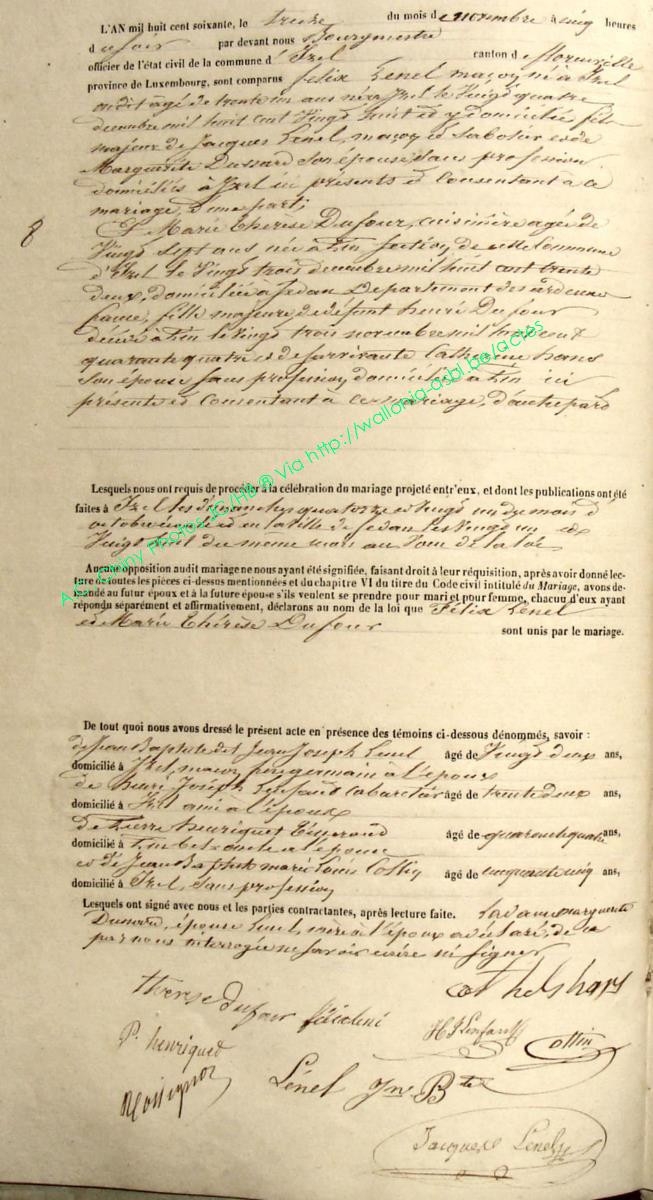 L'AN mil huit cent soixante, le treize du mois de novembre à cinq heures
du soir par devant nous Bourgmestre
officier de l'état civil de la commune d'Izel canton de
province de Luxembourg, sont comparus félix Lenel maçon né à Izel
âgé de trente un ans né à Izel le Vingt quatre
décembre mil huit cent Vingt huit et y domicilié fils
majeur de Jacques Lenel, maçon et Sabotier et de
Marguerite Dussard Son épouse Sans profession
domiciliés à Izel ici présents et Consentant à ce
mariage, d'une part;
8
Et Marie Thérèse Dufour, cuisinière agée de
Vingt Sept ans née à Pin Section de cette Commune
d'Izel le Vingt trois décembre mil huit cent trente
deux, domiciliée à Sedan Département des ardennes
france, fille majeure de défunt henri Dufour
décédé à Pin le Vingt trois novembre mil huit cent
quarante quatre et de Survivante Catherine
Son épouse Sans profession, domiciliée à Pin ici
présente et Consentant à ce mariage, d'autre part
Lesquels nous ont requis de procéder à la célébration du mariage projeté entr'eux, et dont les publications ont été
faites à Izel les dimanches quatorze et Vingt un du mois d'
octobre et en la Ville de Sedan les Vingt un et
Vingt huit du même mois au Nom de la loi
Aucune opposition audit mariage ne nous ayant été signifiée, faisant droit à leur réquisition, après avoir donné lec-
ture de toutes les pièces ci-dessus mentionnées et du chapitre VI du titre du Code civil intitulé du Mariage, avons de-
mandé au futur époux et à la future épouse s'ils veulent se prendre pour mari et pour femme, chacun d'eux ayant
répondu séparément et affirmativement, déclarons au nom de la loi que Félix Lenel
et Marie Thérèse Dufour sont unis par le mariage.
De tout quoi nous avons dressé le présent acte en présence des témoins ci-dessous dénommés, savoir :
de Jean Baptiste dit Jean Joseph Lenel âgé de Vingt deux ans,
domicilié à Izel, maçon germain à l'époux
de henri Joseph Lenfant Cabaretier âgé de trente deux ans,
domicilié à Izel ami à l'époux
de Pierre henriquet Tisserand âgé de quarante quatre ans,
domicilié à Pin bel oncle à l'épouse
et de Jean Baptiste marie Louis Collin âgé de cinquante cinq ans,
domicilié à Izel, Sans profession
Lesquels ont signé avec nous et les parties contractantes, après lecture faite. Sauf marguerite
Dussard, épouse Lenel, mère à l'époux a déclaré, de ce
par nous interrogée ne Savoir écrire ni Signer
thérèse dufour
P. henriquet
H J Lenfant
Lénel Jn Bte
Jacques Lenel
Aux Chiny Photos JC/HB ® Via http://wallonia-asbl.be/actes